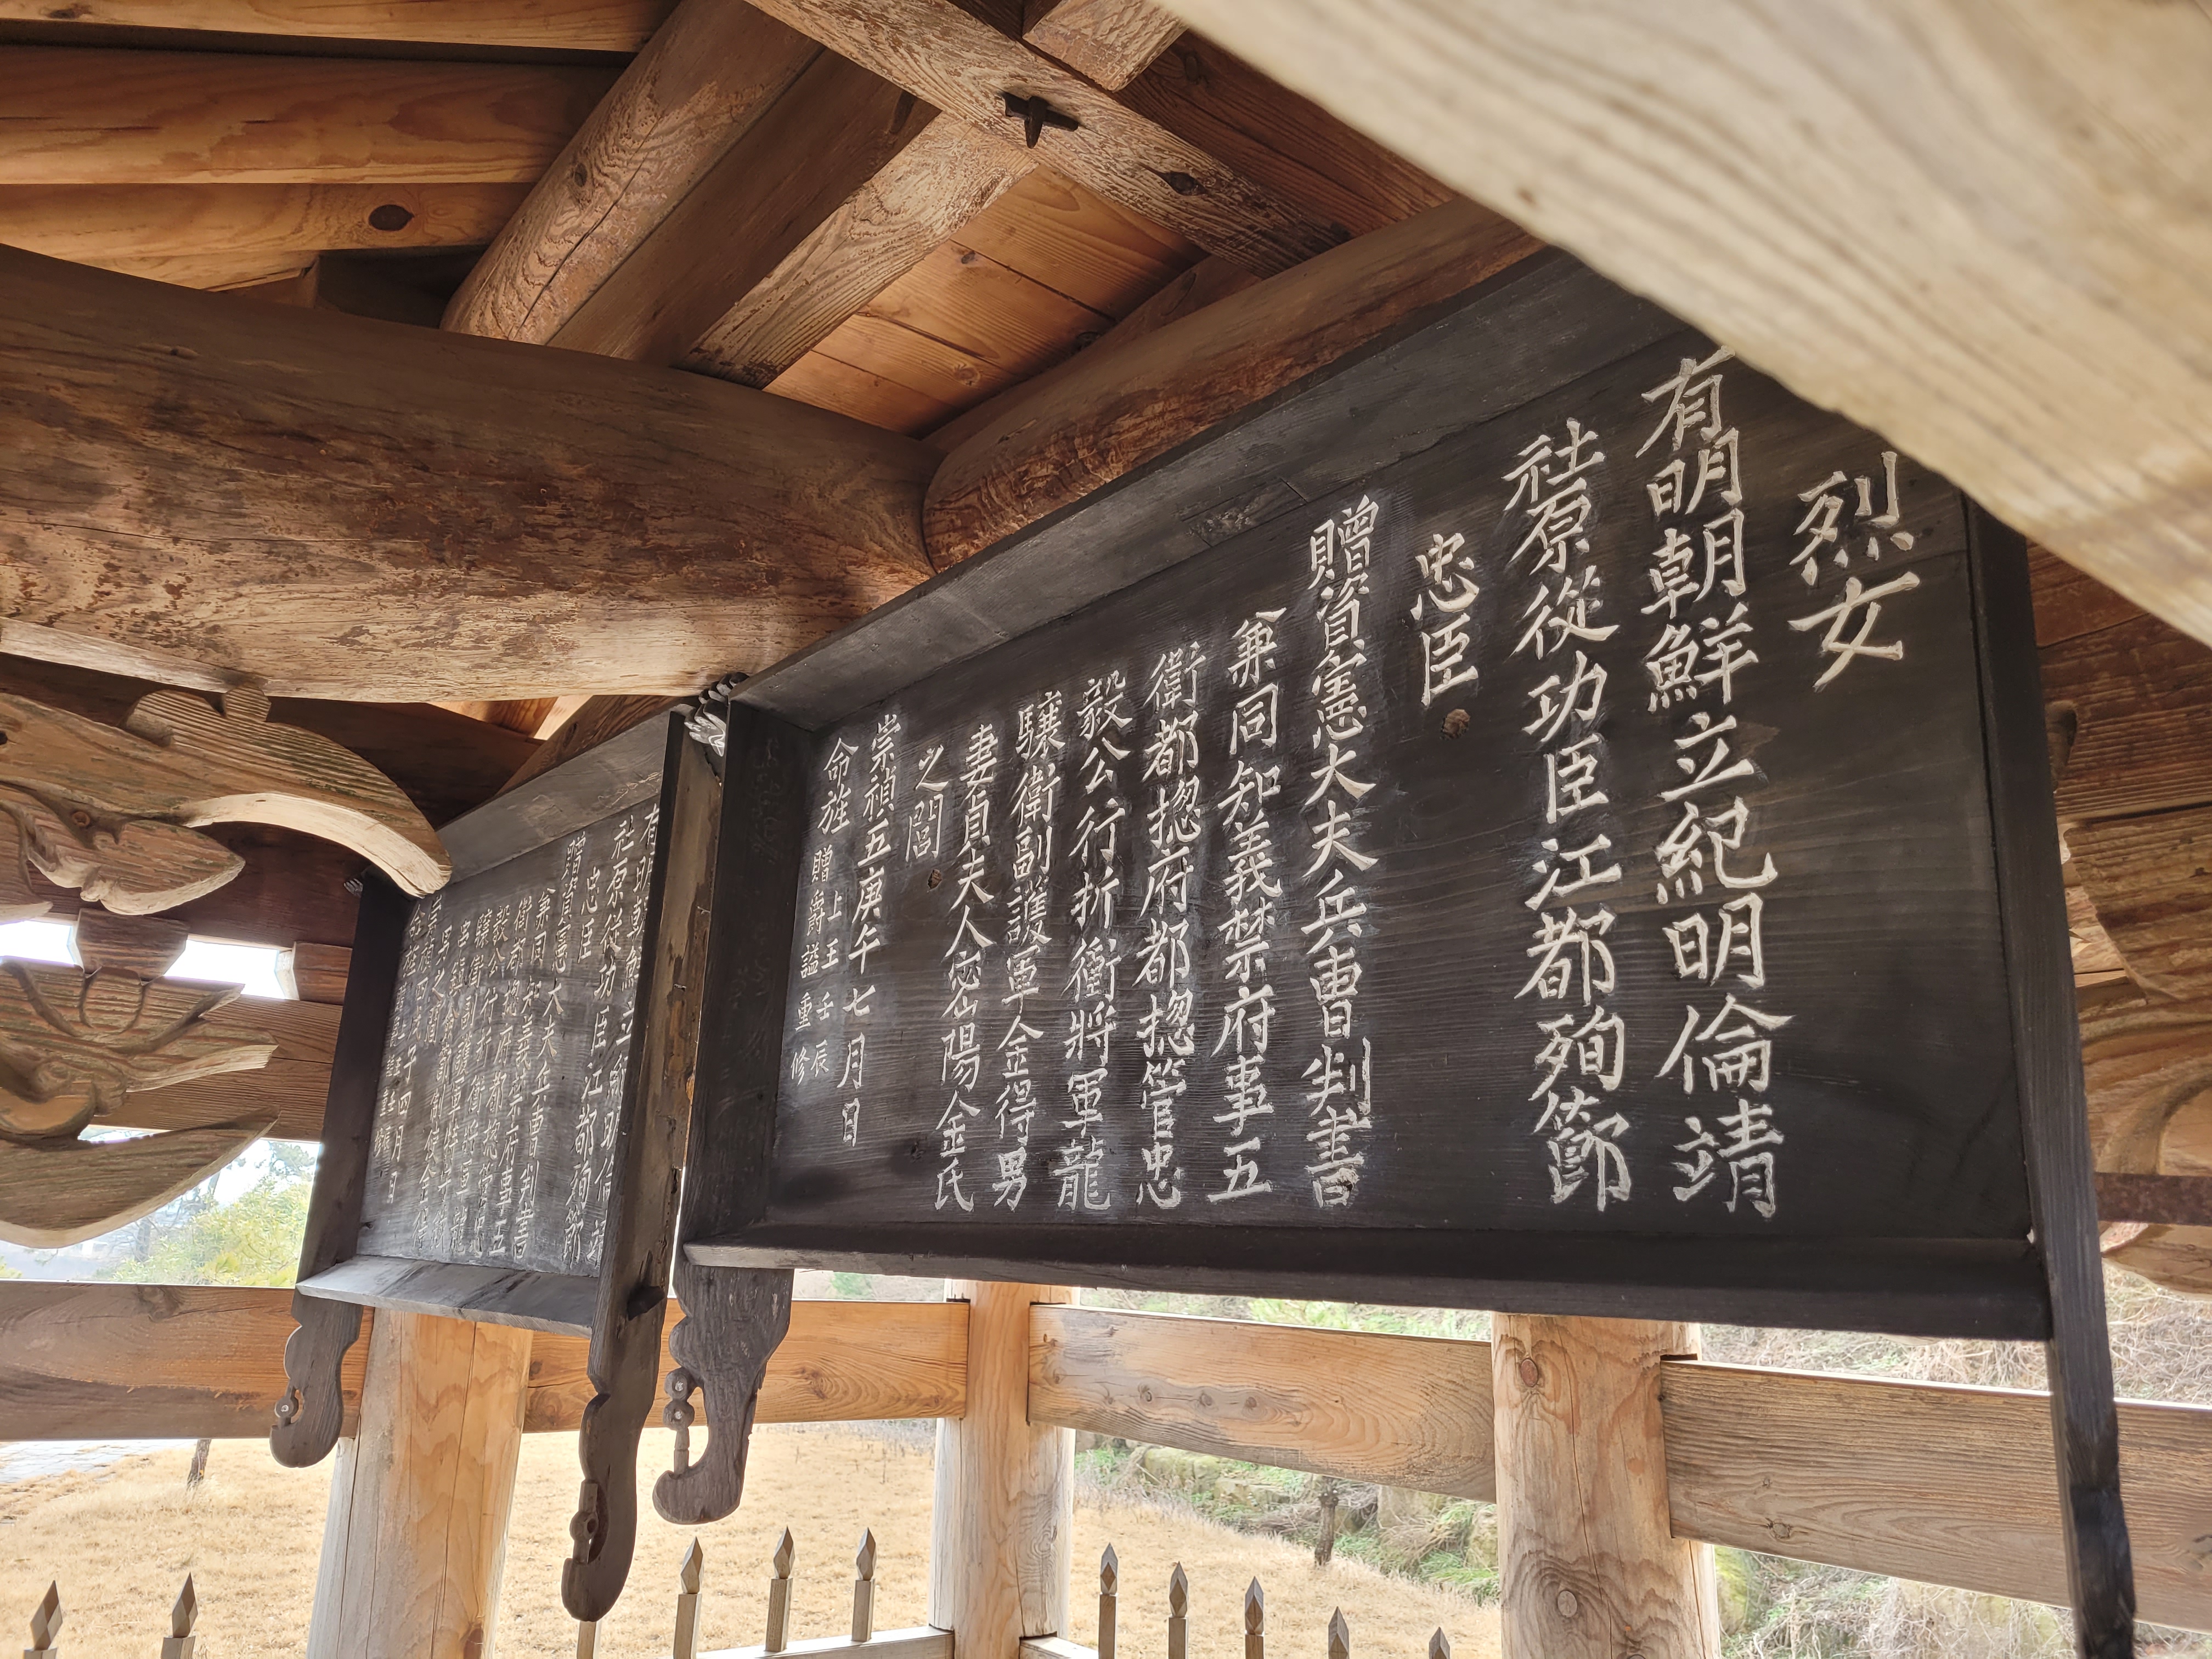 烈女
有明朝鮮立紀明倫靖
社原從功臣江都殉節
忠臣
贈資憲大夫兵曹判書
兼同知義禁府事五
衛都摠府都摠管忠
毅公行折衝將軍龍
驤衛副護軍金得男
妻貞夫人密陽金氏
之閭
崇禎五庚午七月日
命旌 上王壬辰
贈爵諡重修
社原從功臣江都殉節
忠臣
贈資憲大夫兵曹判書
兼同知義禁府事五
衛都摠府都摠管忠
毅公行折衝將軍龍